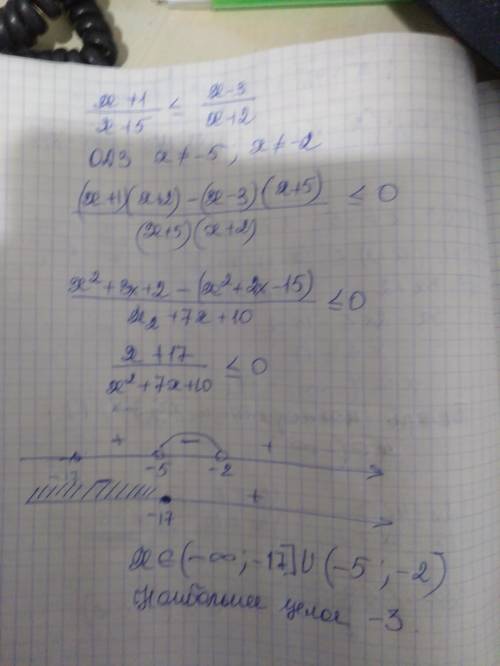 (x+1)/(x+5) ≤ (x-3)/(x+2)
ОДЗ x≠-5, x≠-2
((x+1)(x+2)-(x-3)(x+5))/((x+5)(x+2)) ≤ 0
(x²+3x+2-(x²+2x-15))/(x₂+7x+10) ≤ 0
(x+17)/(x²+7x+10) ≤ 0
+ - +
-17 -5 -2
+
-17
x∈(-∞;-17]∪(-5;-2)
Наибольшее целое -3